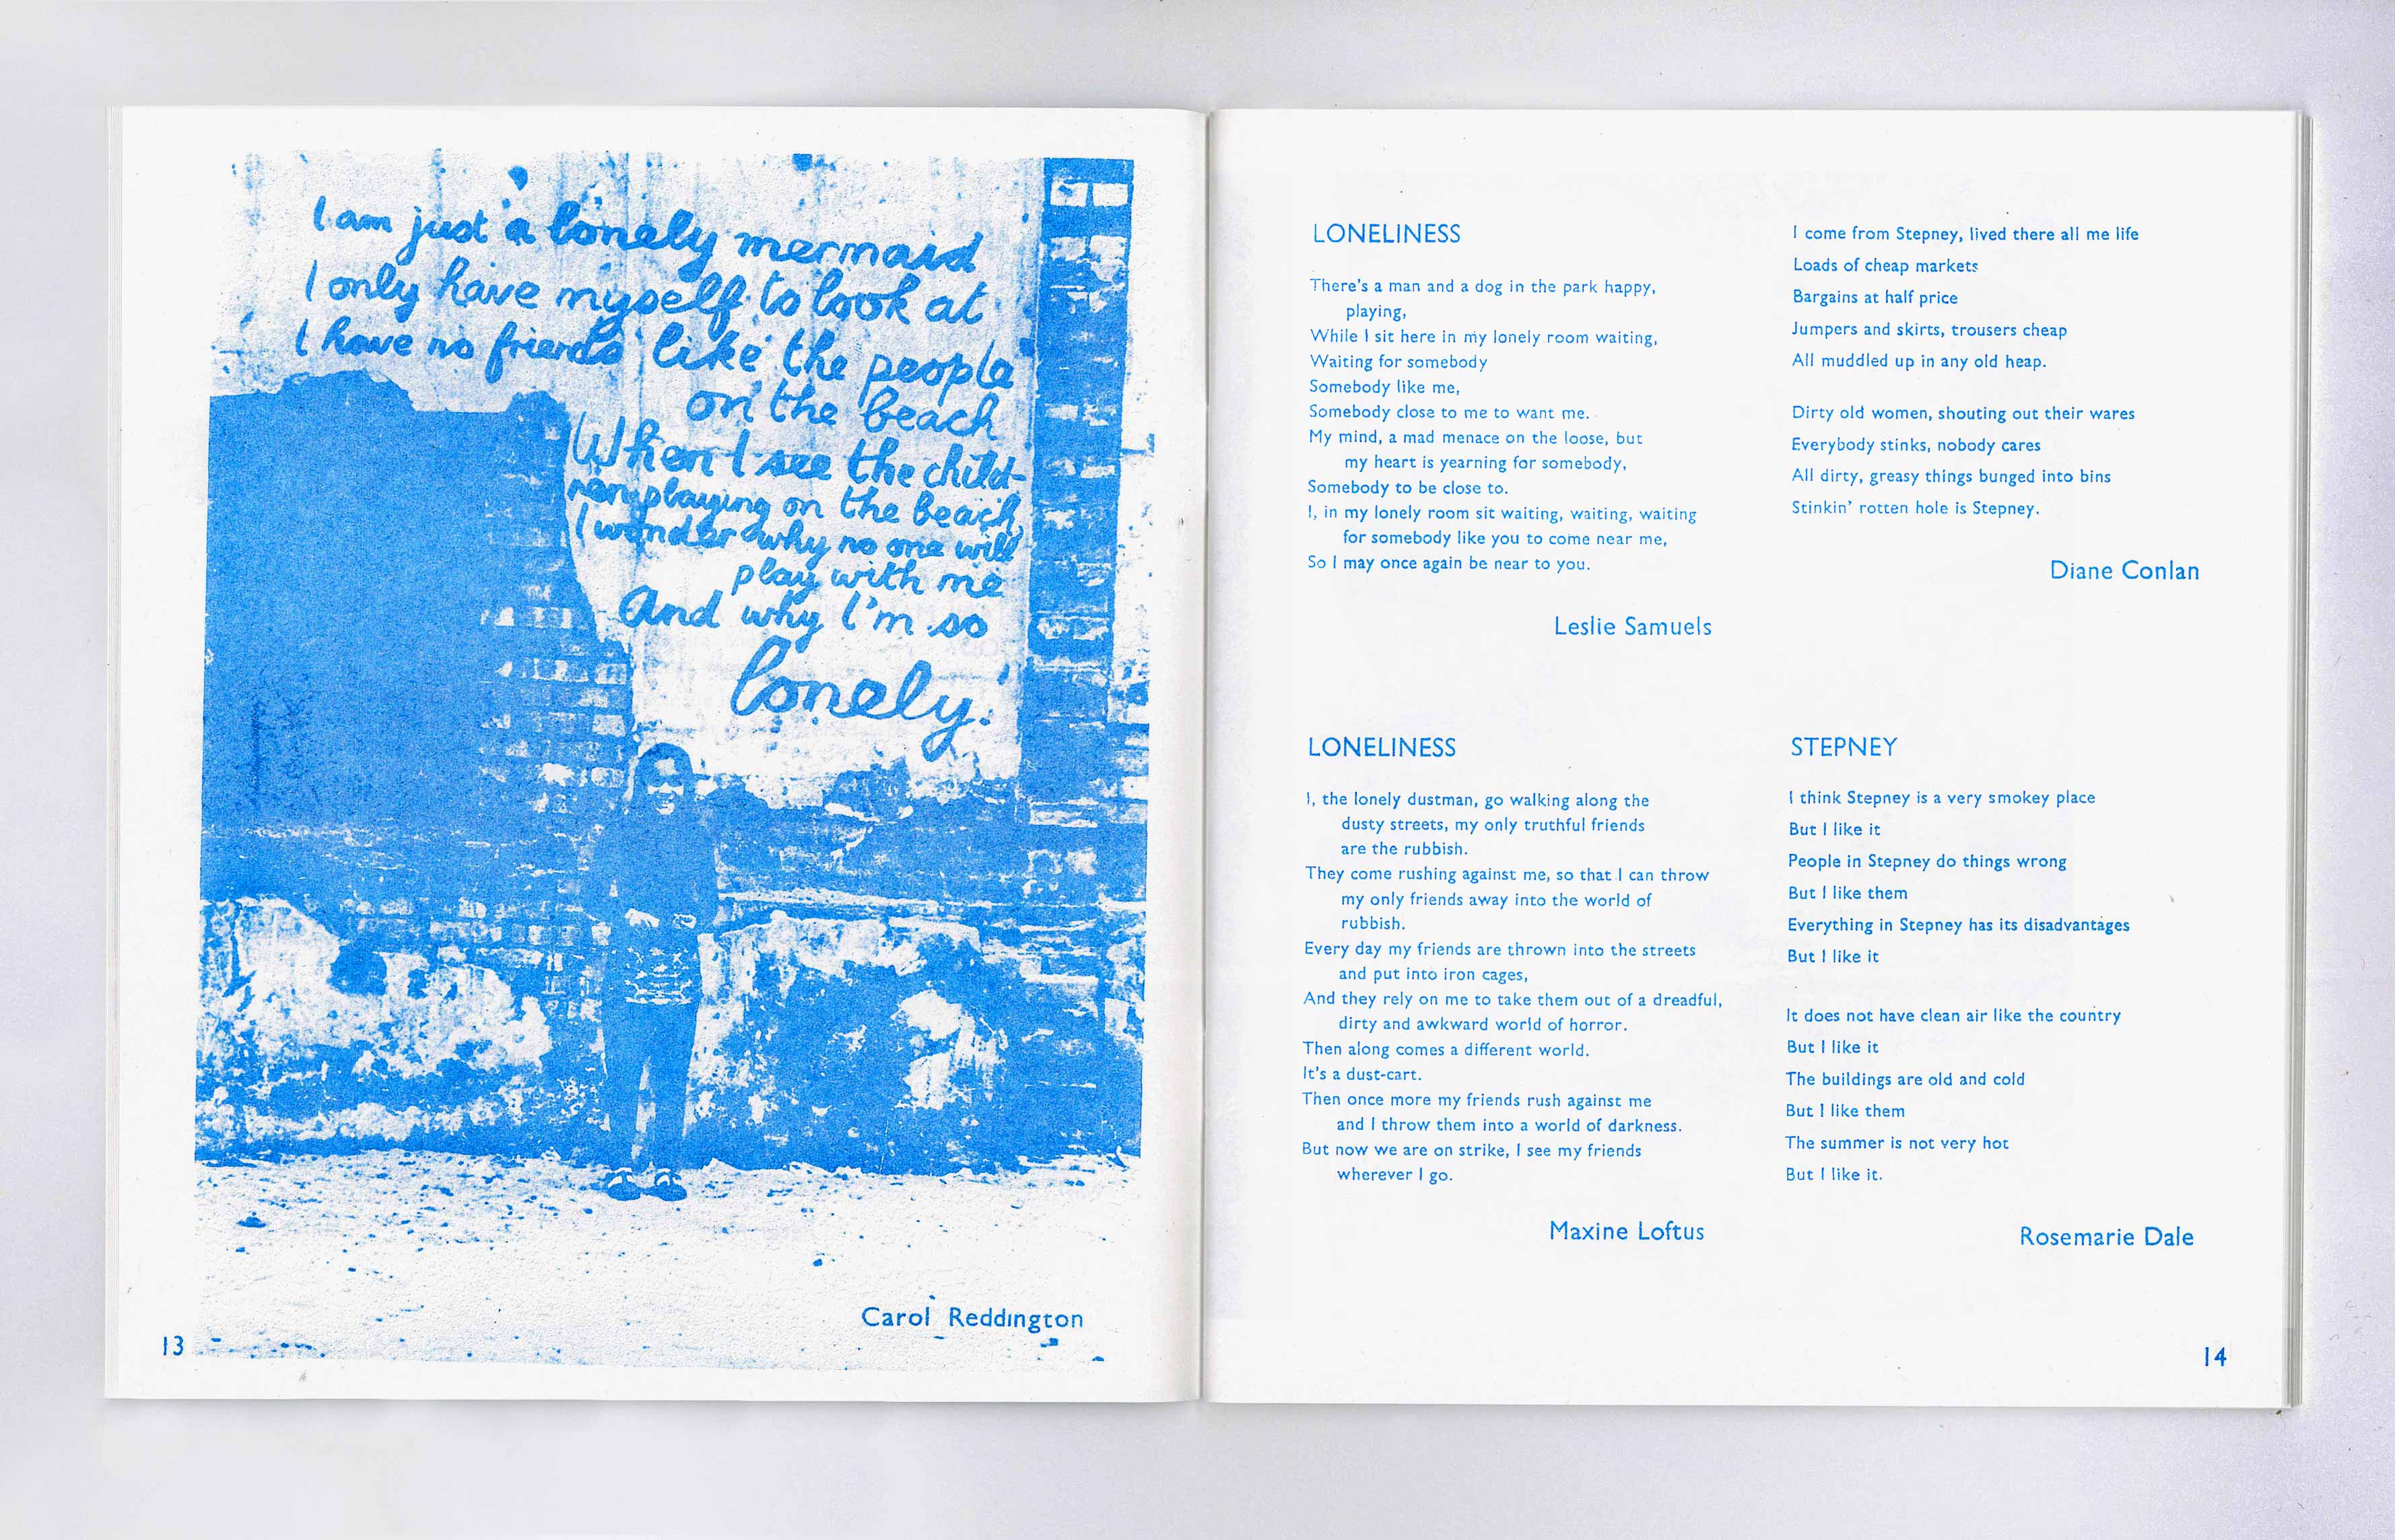 I am just a lonely mermaid
I only have myself to look at
I have no friends like the people
on the beach
When I see the child-
ren playing on the beach,
I wonder why no one will
play with me
And why I'm so
lonely.
Carol Reddington
13
LONELINESS
There's a man and a dog in the park happy,
playing,
While I sit here in my lonely room waiting,
Waiting for somebody
Somebody like me,
Somebody close to me to want me.
My mind, a mad menace on the loose, but
my heart is yearning for somebody,
Somebody to be close to.
I, in my lonely room sit waiting, waiting, waiting
for somebody like you to come near me,
So I may once again be near to you.
Leslie Samuels
LONELINESS
I, the lonely dustman, go walking along the
dusty streets, my only truthful friends
are the rubbish.
They come rushing against me, so that I can throw
my only friends away into the world of
rubbish.
Every day my friends are thrown into the streets
and put into iron cages,
And they rely on me to take them out of a dreadful,
dirty and awkward world of horror.
Then along comes a different world.
It's a dust-cart.
Then once more my friends rush against me
and I throw them into a world of darkness.
But now we are on strike, I see my friends
wherever I go.
Maxine Loftus
I come from Stepney, lived there all me life
Loads of cheap markets
Bargains at half price
Jumpers and skirts, trousers cheap
All muddled up in any old heap.
Dirty old women, shouting out their wares
Everybody stinks, nobody cares
All dirty, greasy things bunged into bins
Stinkin' rotten hole is Stepney.
Diane Conlan
STEPNEY
I think Stepney is a very smokey place
But I like it
People in Stepney do things wrong
But I like them
Everything in Stepney has its disadvantages
But I like it
It does not have clean air like the country
But I like it
The buildings are old and cold
But I like them
The summer is not very hot
But I like it.
Rosemarie Dale
14